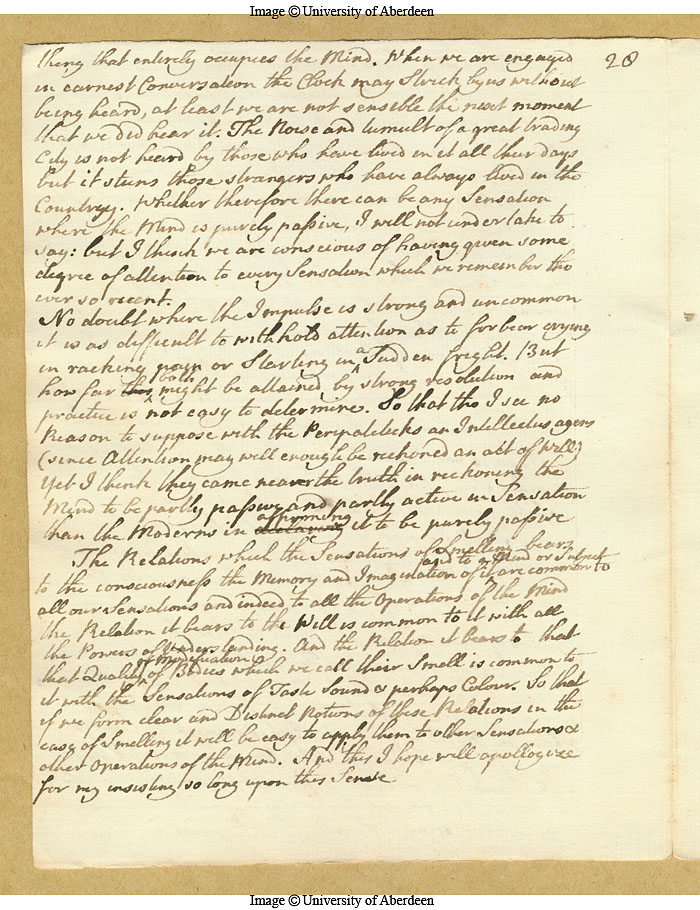 Image © University of Aberdeen
28
thing that entirely occupies the Mind. When we are engaged
in earnest Conversation the Clock may Strick by us without
being heard, at least we are not sensible the next moment
that we did hear it. The Noise and tumult of a great trading
City is not heard by those who have lived in it all their days
but it stuns those strangers who have always lived in the
Countrey. Whether therefore there can be any Sensation
where the Mind is purely passive, I will not undertake to
say: but I think we are conscious of having given some
degree of attention to every Sensation which we remember tho
ever so recent.
No doubt where the Impulse is strong and uncommon
it is as difficult to withhold attention as to forbear crying
in racking pain or Starting in a Sudden fright. But
how far this both might be attained by strong resolution and
practice is not easy to determine. So that tho I see no
Reason to suppose with the Peripateticks an Intellectus agens
(since Attention may well enough be reckoned an act of Will)
Yet I think they came nearer the truth in reckoning the
Mind to be partly passive and partly active in Sensation
than the Moderns in affirming it to be purely passive
The Relations which the Sensations of Smelling bears
and to a Mind or Subject
to the consciousness the Memory and Imagination of it are common to
all our Sensations and indeed to all the Operations of the Mind
the Relation it bears to the Will is common to it with all
the Powers of Understanding. And the Relation it bears to that
or Modification
that Quality of Bodies which we call their Smell is common to
it with the Sensations of Taste Sound & perhaps Colour. So that
if we form clear and Distinct Notions of these Relations in the
case of Smelling it will be easy to apply them to other Sensations &
other Operations of the Mind. And this I hope will apollogize
for my insisting so long upon this Sense
Image © University of Aberdeen